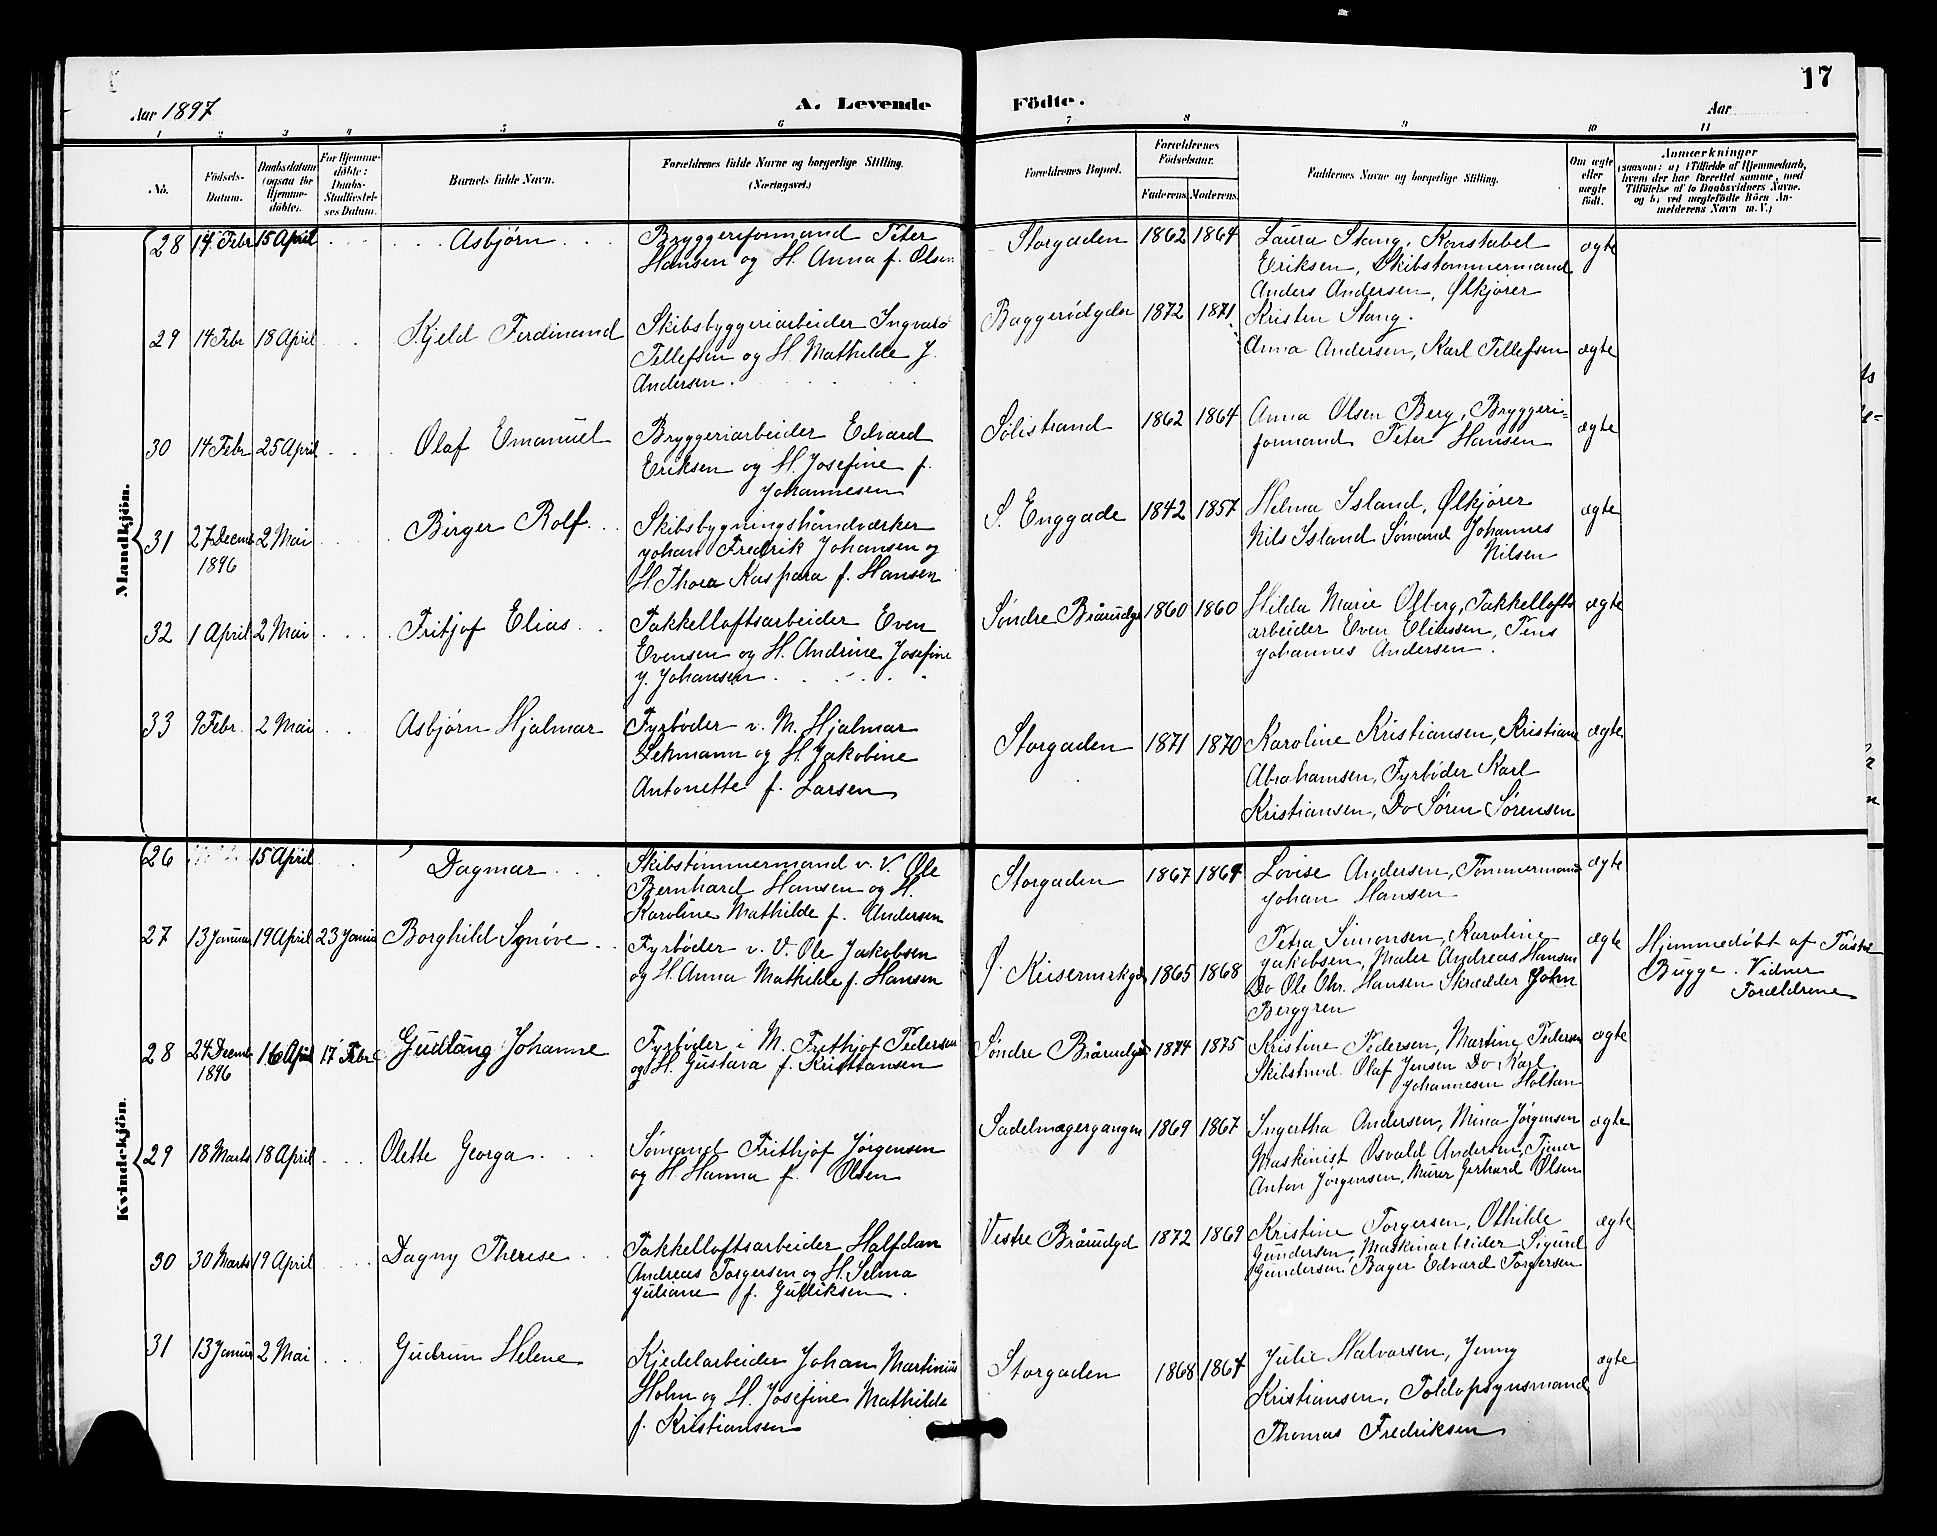 17
Aar 1897
A. Levende
Födte.
Aar
1 2 3 4 5 6 7 8 9 10 11
No.
Födsels-Datum.
Daabsdatum (ogsaa for Hjemme-döbte).
For Hjemme-döbte: Daabs-Stadfæstel-ses Datum.
Barnets fulde Navn.
Forældrenes fulde Navne og borgerlige Stilling.
(Næringsvei.)
Forældrenes Bopæl.
Forældrenes Födselsaar.
Faderens Moderens
Faddernes Navne og borgerlige Stilling.
Om ægte eller uægte födt.
Anmærkninger
(saasom: a) i Tilfælde af Hjemmedaab, hvem der har forrettet samme, med Tilföielse af to Daabsvidners Navne, og b) ved uægtefödte Börn An-melderens Navn m. V.)
Mandkjön.
28 14 Febr 15 April Asbjørn
Bryggeriformand Peter
Hansen og H. Anna f. Olsen
Storgaden 1862 1864
Laura Stang, Konstabel
Eriksen, Skibstømmermand
Anders Andersen, Ølkjører
Kristen Stang.
ægte
29 14 Febr 18 April Kjeld Ferdinand
Skibsbyggeriarbeider Ingvald
Tellefsen og H. Mathilde f.
Andersen.
Baggerødgdn 1872 1871
Anna Andersen, Karl Tellefsen
ægte
30 14 Febr 25 April Olaf Emanuel
Bryggeriarbeider Edvard
Eriksen og H. Josefine f.
Johannesen
Solistrand 1862 1864
Anna Olsen Berg, Bryggeri-
formand Peter Hansen
ægte
31 27 Decmb 1896 2 Mai Birger Rolf
Skibsbygningshåndværker
Johan Fredrik Johansen og
H. Thora Kaspara f. Hansen
S. Enggade 1842 1857
Helma Island, Ølkjører
Nils Island Sømand Johannes
Nilsen
ægte
32 1 April 2 Mai Fritjof Elias
Takkelloftsarbeider Even
Evensen og H. Andrine Josefine
f. Johansen
Søndre Bårudgd 1860 1860
Hilda Marie Olberg, Takkellofts
arbeider Even Eliassen, Tens
Johannes Andersen.
ægte
33 9 Febr. 2 Mai Asbjørn Hjalmar
Fyrbøder v. M. Hjalmar
Lehmann og H. Jakobine
Antonette f. Larsen
Storgaden 1871 1870
Karoline Kristiansen, Kristiane
Abrahamsen, Fyrbøder Karl
Kristiansen, Do Søren Sørensen
ægte
Kvindekjön.
26 15 April Dagmar
Skibstømmermand v. V. Ole
Bernhard Hansen og H.
Karoline Mathilde f. Andersen
Storgaden 1867 1864
Lovise Andersen, Tømmermand
Johan Hansen
ægte
27 13 Januar 19 April 23 Januar Borghild Synøve
Fyrbøder v. V. Ole Jakobsen
og H. Anna Mathilde f. Hansen
Ø. Keisermrkgd 1865 1868
Petra Simonsen, Karoline
Jakobsen, Maler Andreas Hansen
Do Ole Chr. Hansen Skrædder John
Berggren
ægte
Hjemmedøbt af
Bugge. Vidner
Forældrene
28 24 Decmb 1896 16 April 17 Febr Gudlaug Johanne
Fyrbøder i M. Frethjof Pedersen
og H. Gustava f. Kristiansen
Søndre Bårudgd 1874 1875
Kristine Pedersen, Martine Pedersen
Skibstmd. Olaf Jensen Do Karl
Johannesen Holtan
ægte
29 18 Marts 18 April Olette Georga
Sømand Frithjof Jørgensen
og H. Hanna f. Olsen
Sadelmagergangen 1869 1867
Ingertha Andersen, Mina Jørgensen
Maskinist Osvald Andersen, Tjener
Anton Jørgensen, Murer Gerhard Olsen
ægte
30 30 Marts 19 April Dagny Therese
Takkelloftsarbeider Halfdan
Andreas Torgersen og H. Selma
Juliane f. Gulliksen.
Vestre Bårudgd 1872 1869
Kristine Torgersen, Othilde
Gundersen, Maskinarbeider Sigurd
Gundersen, Bager Edvard Torgersen
ægte
31 13 Januar 2 Mai Gudrun Helene
Kjedelarbeider Johan Martinius
Holm og H. Josefine Mathilde
f. Kristiansen
Storgaden 1868 1864
Julie Halvorsen, Jenny
Kristiansen, Toldopsynsmand
Thomas Fredriksen
ægte